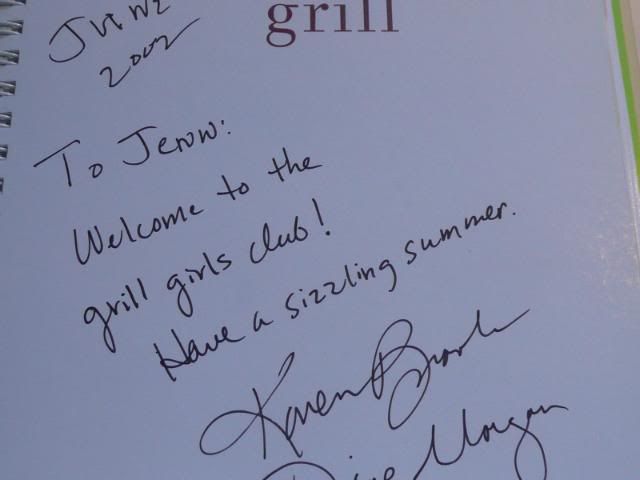 grill
June
2002
To Jenw:
Welcome to the
grill girls club!
Have a sizzling summer.
Karen Brooks
Morgan